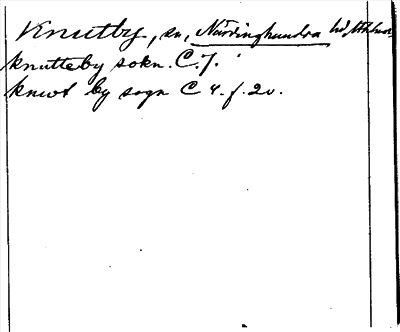 Knutby, sn, Närdinghundra hd,
knutteby sokn. C. 7.
knwt by sogn C 4. f. 2v.